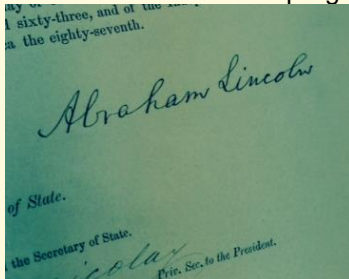 l sixty-three, and of the
a the eighty-seventh.
Abraham Lincoln
of State.
the Secretary of State.
icolay
Priv. Sec. to the President.